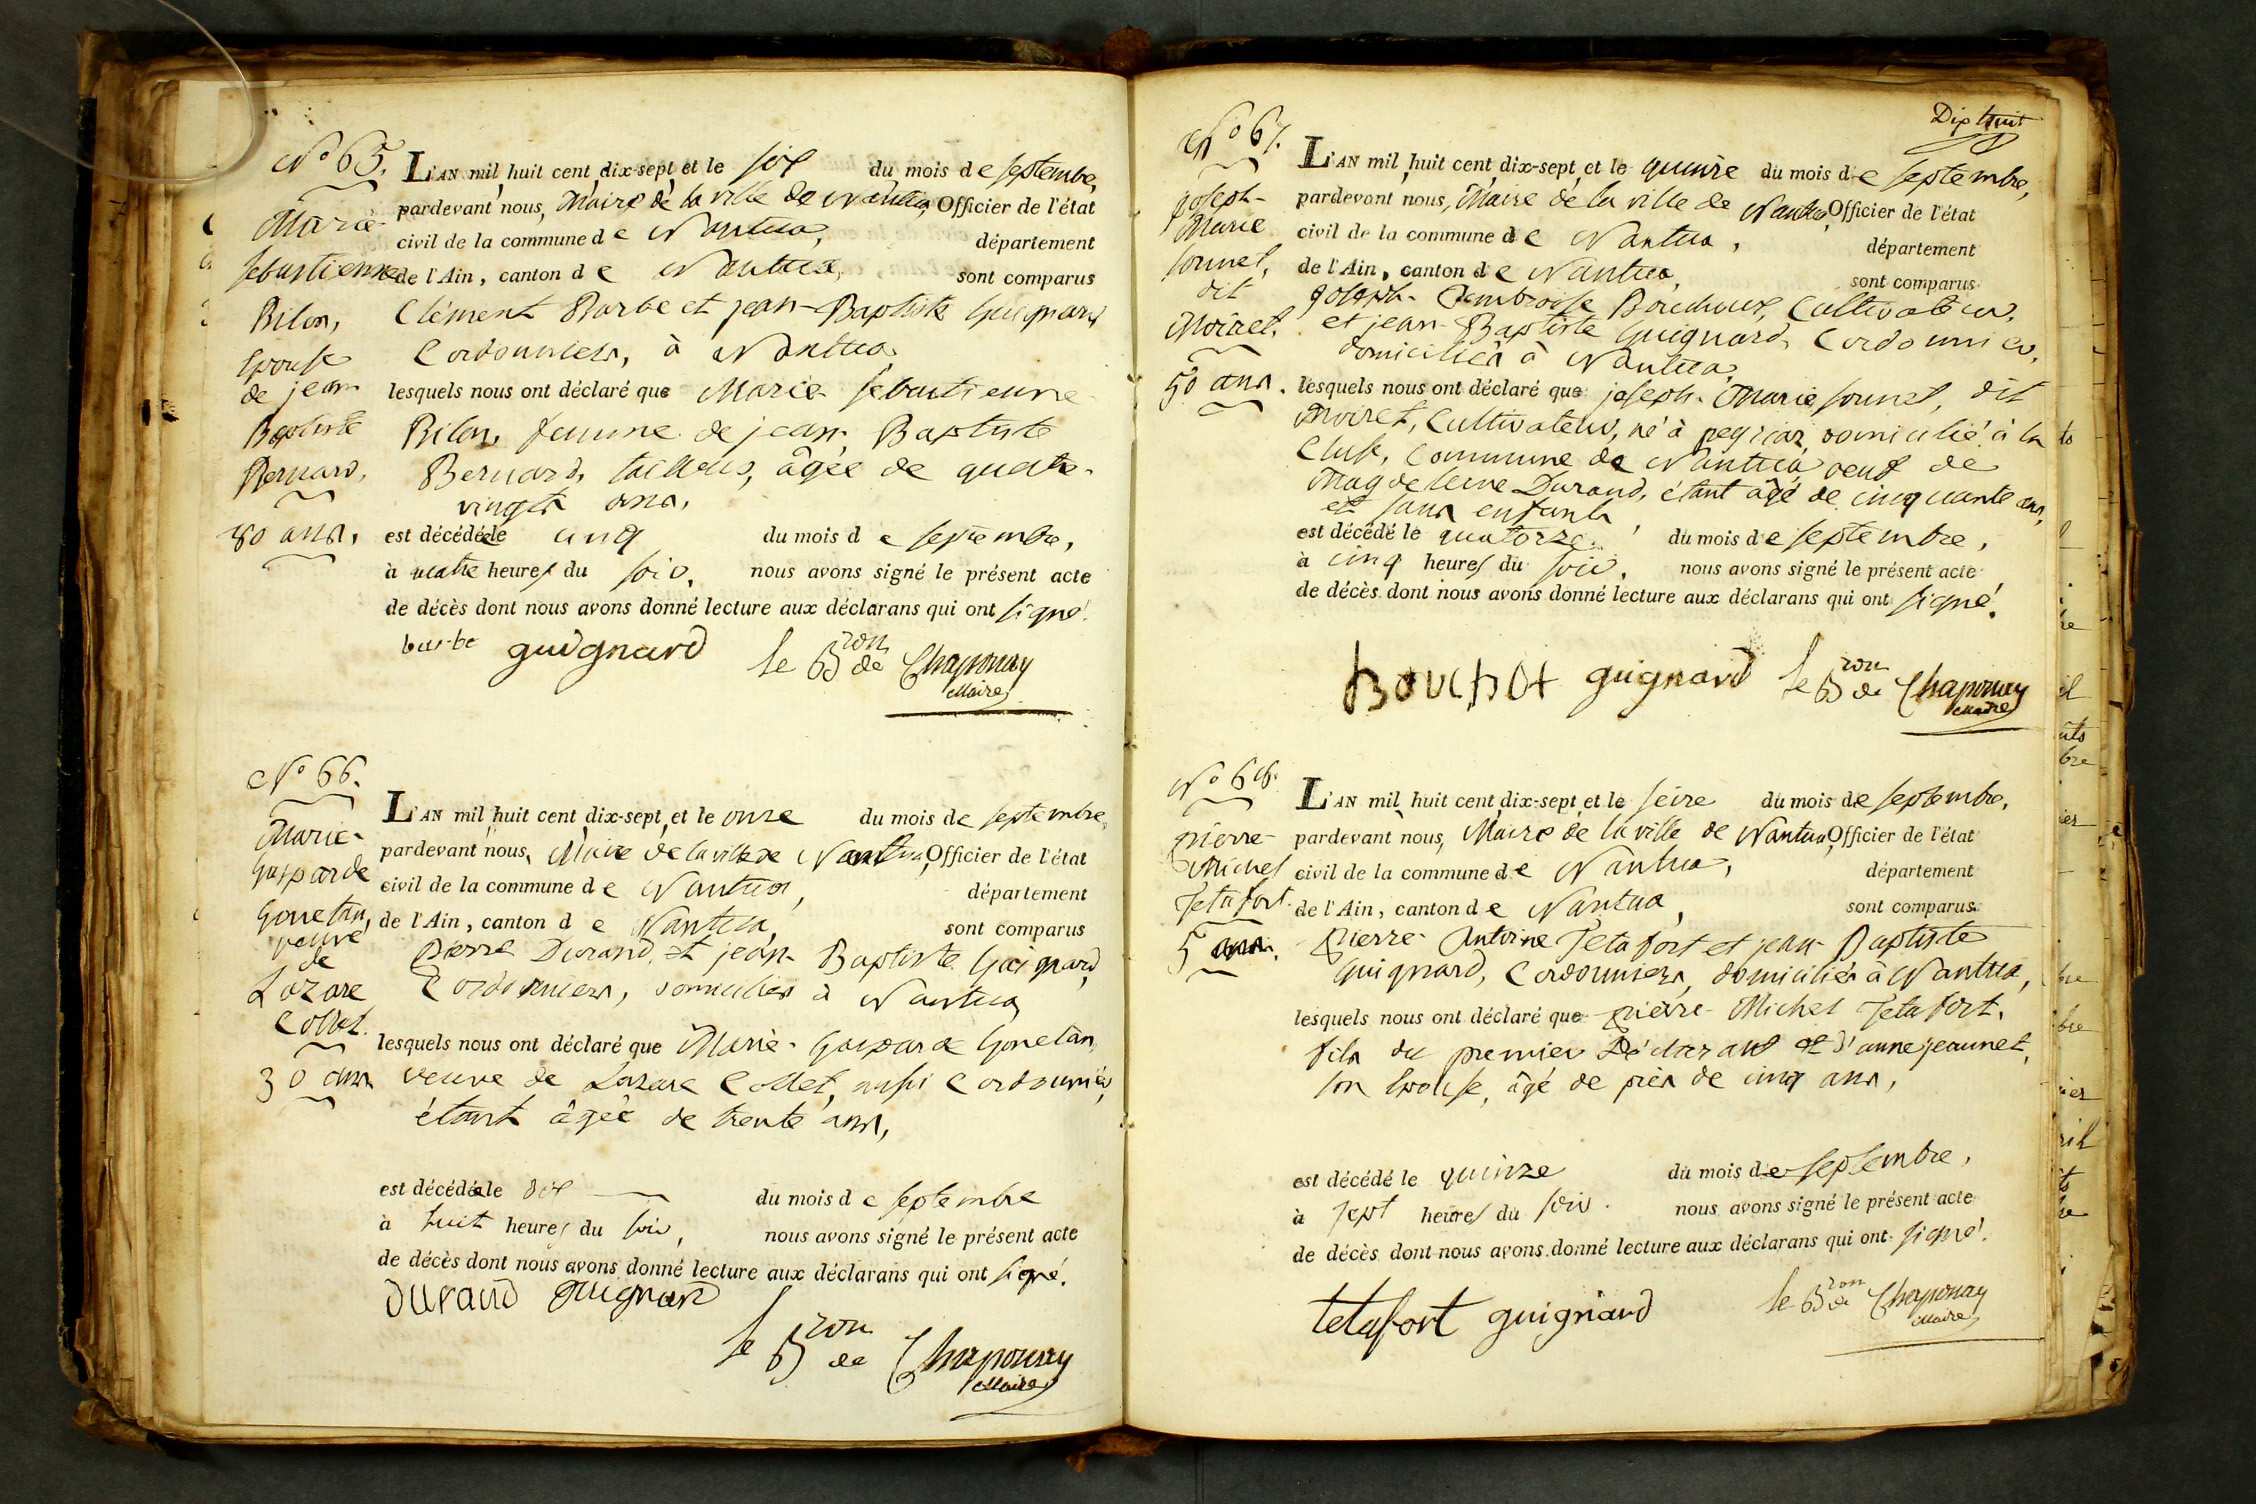 N° 65.
Marie-
Sebastienne
Bilon,
Epouse
de jean
Baptiste
Bernard,
80 ans.
L'AN mil huit cent dix-sept, et le six du mois de septembre,
pardevant nous, Maire de la ville de Nantua, Officier de l'état
civil de la commune de Nantua, département
de l'Ain, canton de Nantua, sont comparus
Clément Barbe et jean-Baptiste Guignard
Cordonniers, à Nantua
lesquels nous ont déclaré que Marie-Sébastienne
Bilon, femme de jean-Baptiste
Bernard, tailleur, âgée de quatre-
vingts ans,
est décédée le cinq du mois de septembre,
à quatre heures du soir, nous avons signé le présent acte
de décès dont nous avons donné lecture aux déclarans qui ont signé.
barbe guignard le Bron de Chaponay
Maire
N° 66.
Marie-
Gasparde
Gonetan,
veuve
de
Lazare
Collet.
30 ans
L'AN mil huit cent dix-sept, et le onze du mois de septembre,
pardevant nous, Maire de la ville de Nantua, Officier de l'état
civil de la commune de Nantua, département
de l'Ain, canton de Nantua, sont comparus
Pierre Durand, et jean-Baptiste Guignard,
Cordonniers, domiciliés à Nantua
lesquels nous ont déclaré que Marie-Gasparde Gonetan,
veuve de Lazare Collet, aussi Cordonnier,
étant âgée de trente ans,
est décédée le dix du mois de septembre
à huit heures du soir, nous avons signé le présent acte
de décès dont nous avons donné lecture aux déclarans qui ont signé.
Durand guignard
le Bron de Chaponay
Maire
Dix huit
N° 67.
joseph-
Marie
Sonnet,
dit
Moiret.
50 ans.
L'AN mil huit cent dix-sept, et le quinze du mois de septembre,
pardevant nous, Maire de la ville de Nantua, Officier de l'état
civil de la commune de Nantua, département
de l'Ain, canton de Nantua, sont comparus
joseph-Ambroise Bouchot, Cultivateur,
et jean-Baptiste Guignard, Cordonnier,
domiciliés à Nantua,
lesquels nous ont déclaré que joseph-Marie Sonnet, dit
Moiret, Cultivateur, né à peyriat, domicilié à la
Cluse, Commune de Nantua, veuf de
Magdeleine Durand, étant âgé de cinquante ans,
et sans enfants,
est décédé le quatorze du mois de septembre,
à cinq heures du soir, nous avons signé le présent acte
de décès dont nous avons donné lecture aux déclarans qui ont signé.
Bouchot guignard le Bron de Chaponay
Maire
N° 68.
pierre-
Michel
Tetafort.
5 ans.
L'AN mil huit cent dix-sept, et le seize du mois de septembre,
pardevant nous, Maire de la ville de Nantua, Officier de l'état
civil de la commune de Nantua, département
de l'Ain, canton de Nantua, sont comparus
Pierre-Antoine Tetafort et jean-Baptiste
Guignard, Cordonniers, domiciliés à Nantua,
lesquels nous ont déclaré que pierre-Michel Tetafort,
fils du premier Déclarant et d'anne jeannet,
son Epouse, âgé de près de cinq ans,
est décédé le quinze du mois de septembre,
à sept heures du soir. nous avons signé le présent acte
de décès dont nous avons donné lecture aux déclarans qui ont signé.
tetafort guignard le Bron de Chaponay
Maire